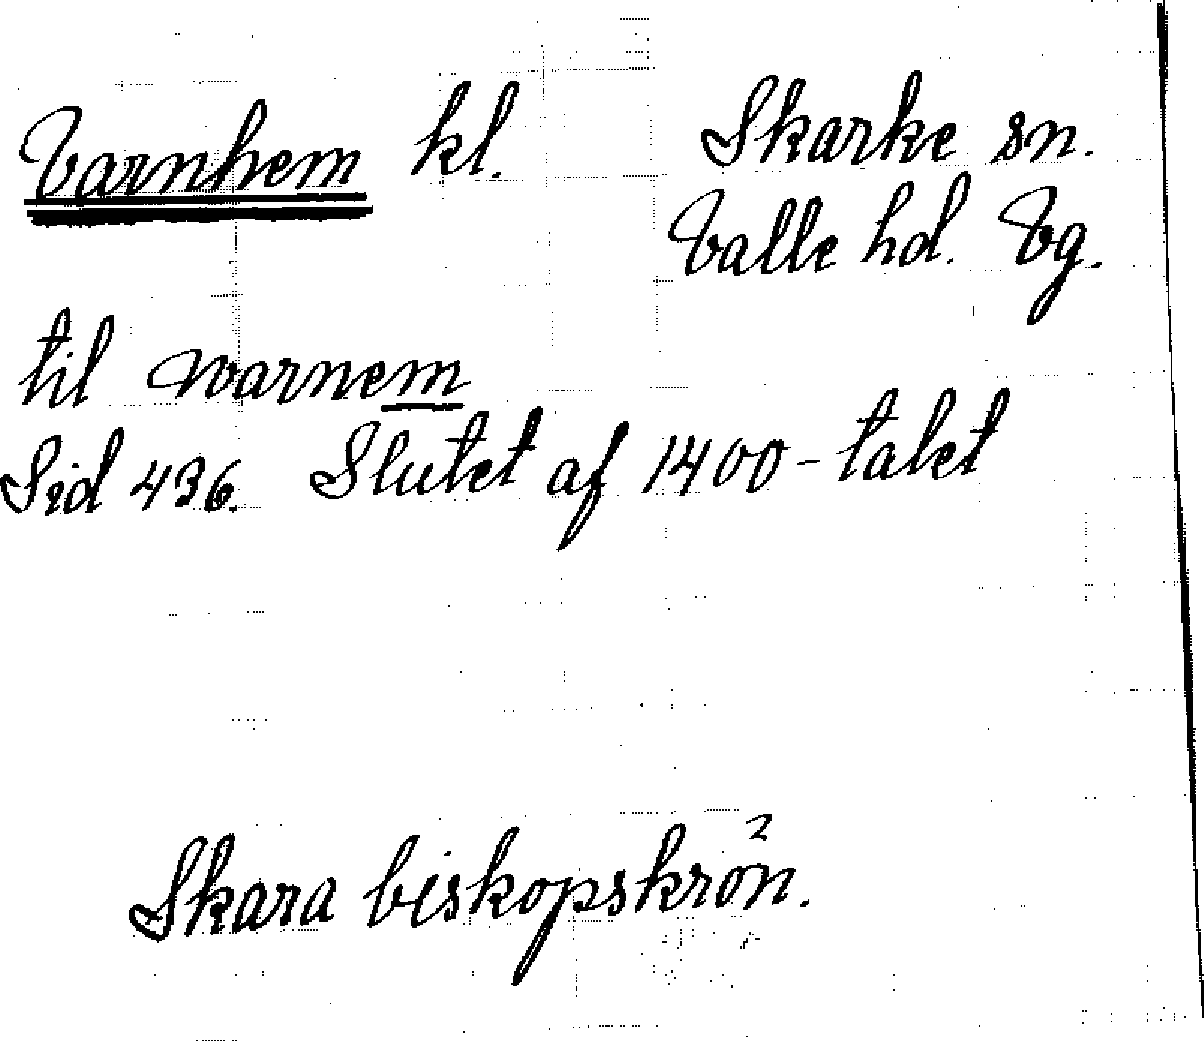 Varnhem kl. Skarke sn.
Valle hd. Vg.
til warnem
Sid 436. Slutet af 1400-talet
Skara biskopskrön.